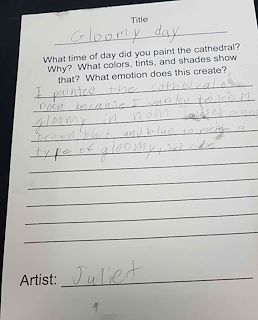 Title
Gloomy day
What time of day did you paint the cathedral?
Why? What colors, tints, and shades show
that? What emotion does this create?
I painted the cathedral
noon because I wanted to
gloomy in noon
brown black and blue to a
type of gloomy, sad
Artist: Juliet